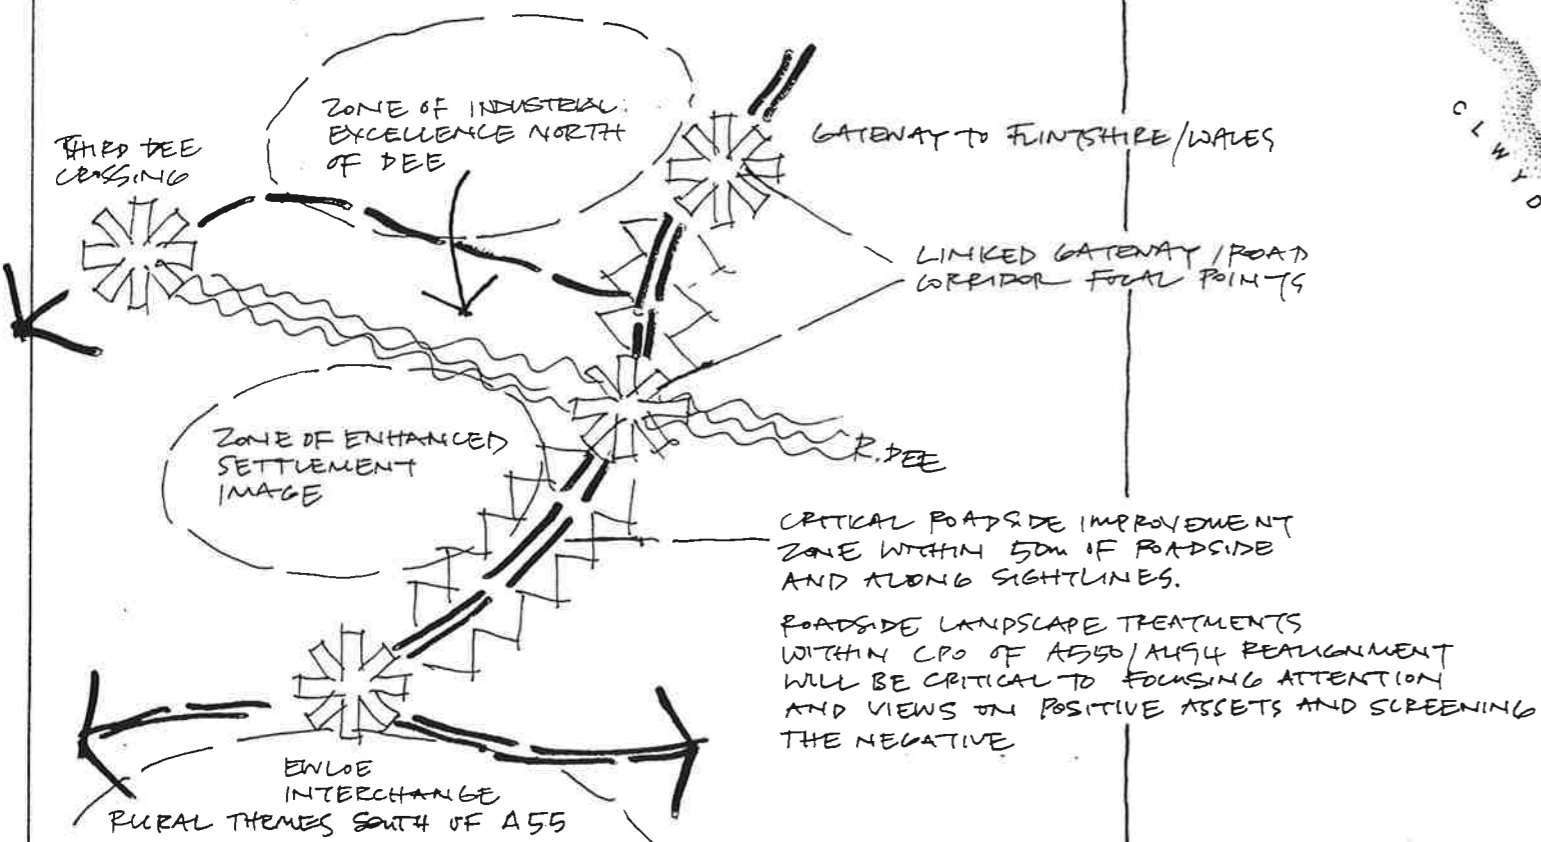 ZONE OF INDUSTRIAL
EXCELLENCE NORTH
OF DEE
THIRD DEE
CROSSING
GATEWAY TO FLINTSHIRE/WALES
CLWYD
LINKED GATEWAY/ROAD
CORRIDOR FOCAL POINTS
ZONE OF ENHANCED
SETTLEMENT
IMAGE
R. DEE
CRITICAL ROADSIDE IMPROVEMENT
ZONE WITHIN 50m OF ROADSIDE
AND ALONG SIGHTLINES.
ROADSIDE LANDSCAPE TREATMENTS
WITHIN CPO OF A550/A494 REALIGNMENT
WILL BE CRITICAL TO FOCUSING ATTENTION
AND VIEWS ON POSITIVE ASSETS AND SCREENING
THE NEGATIVE
EWLOE
INTERCHANGE
RURAL THEMES SOUTH OF A55